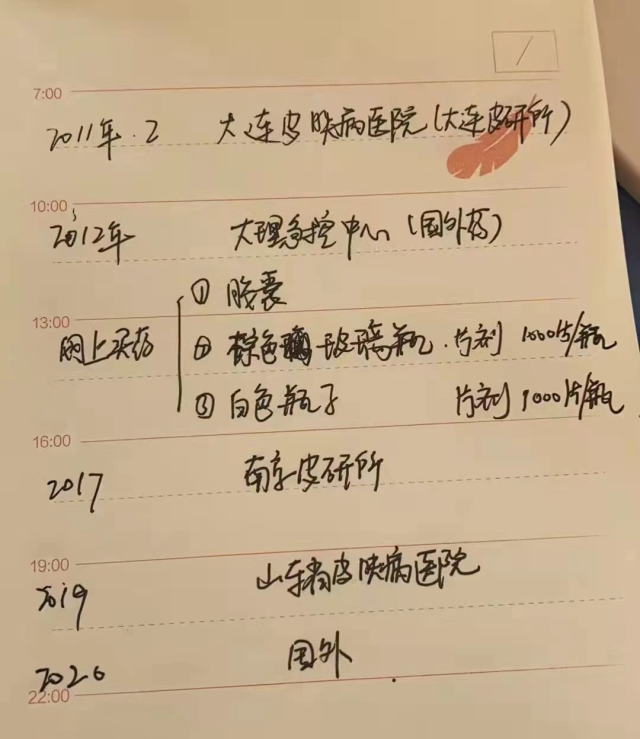 /
7:00
2011年.2 大连皮肤病医院(大连皮研所)
10:00
2012年 大理疾控中心(国外药)
① 胶囊
13:00
网上买药 ② 棕色 玻璃瓶.片剂 1000片/瓶
③ 白色瓶子 片剂 1000片/瓶
16:00
2017 南京皮研所
19:00
2019 山东省皮肤病医院
2020 国外
22:00